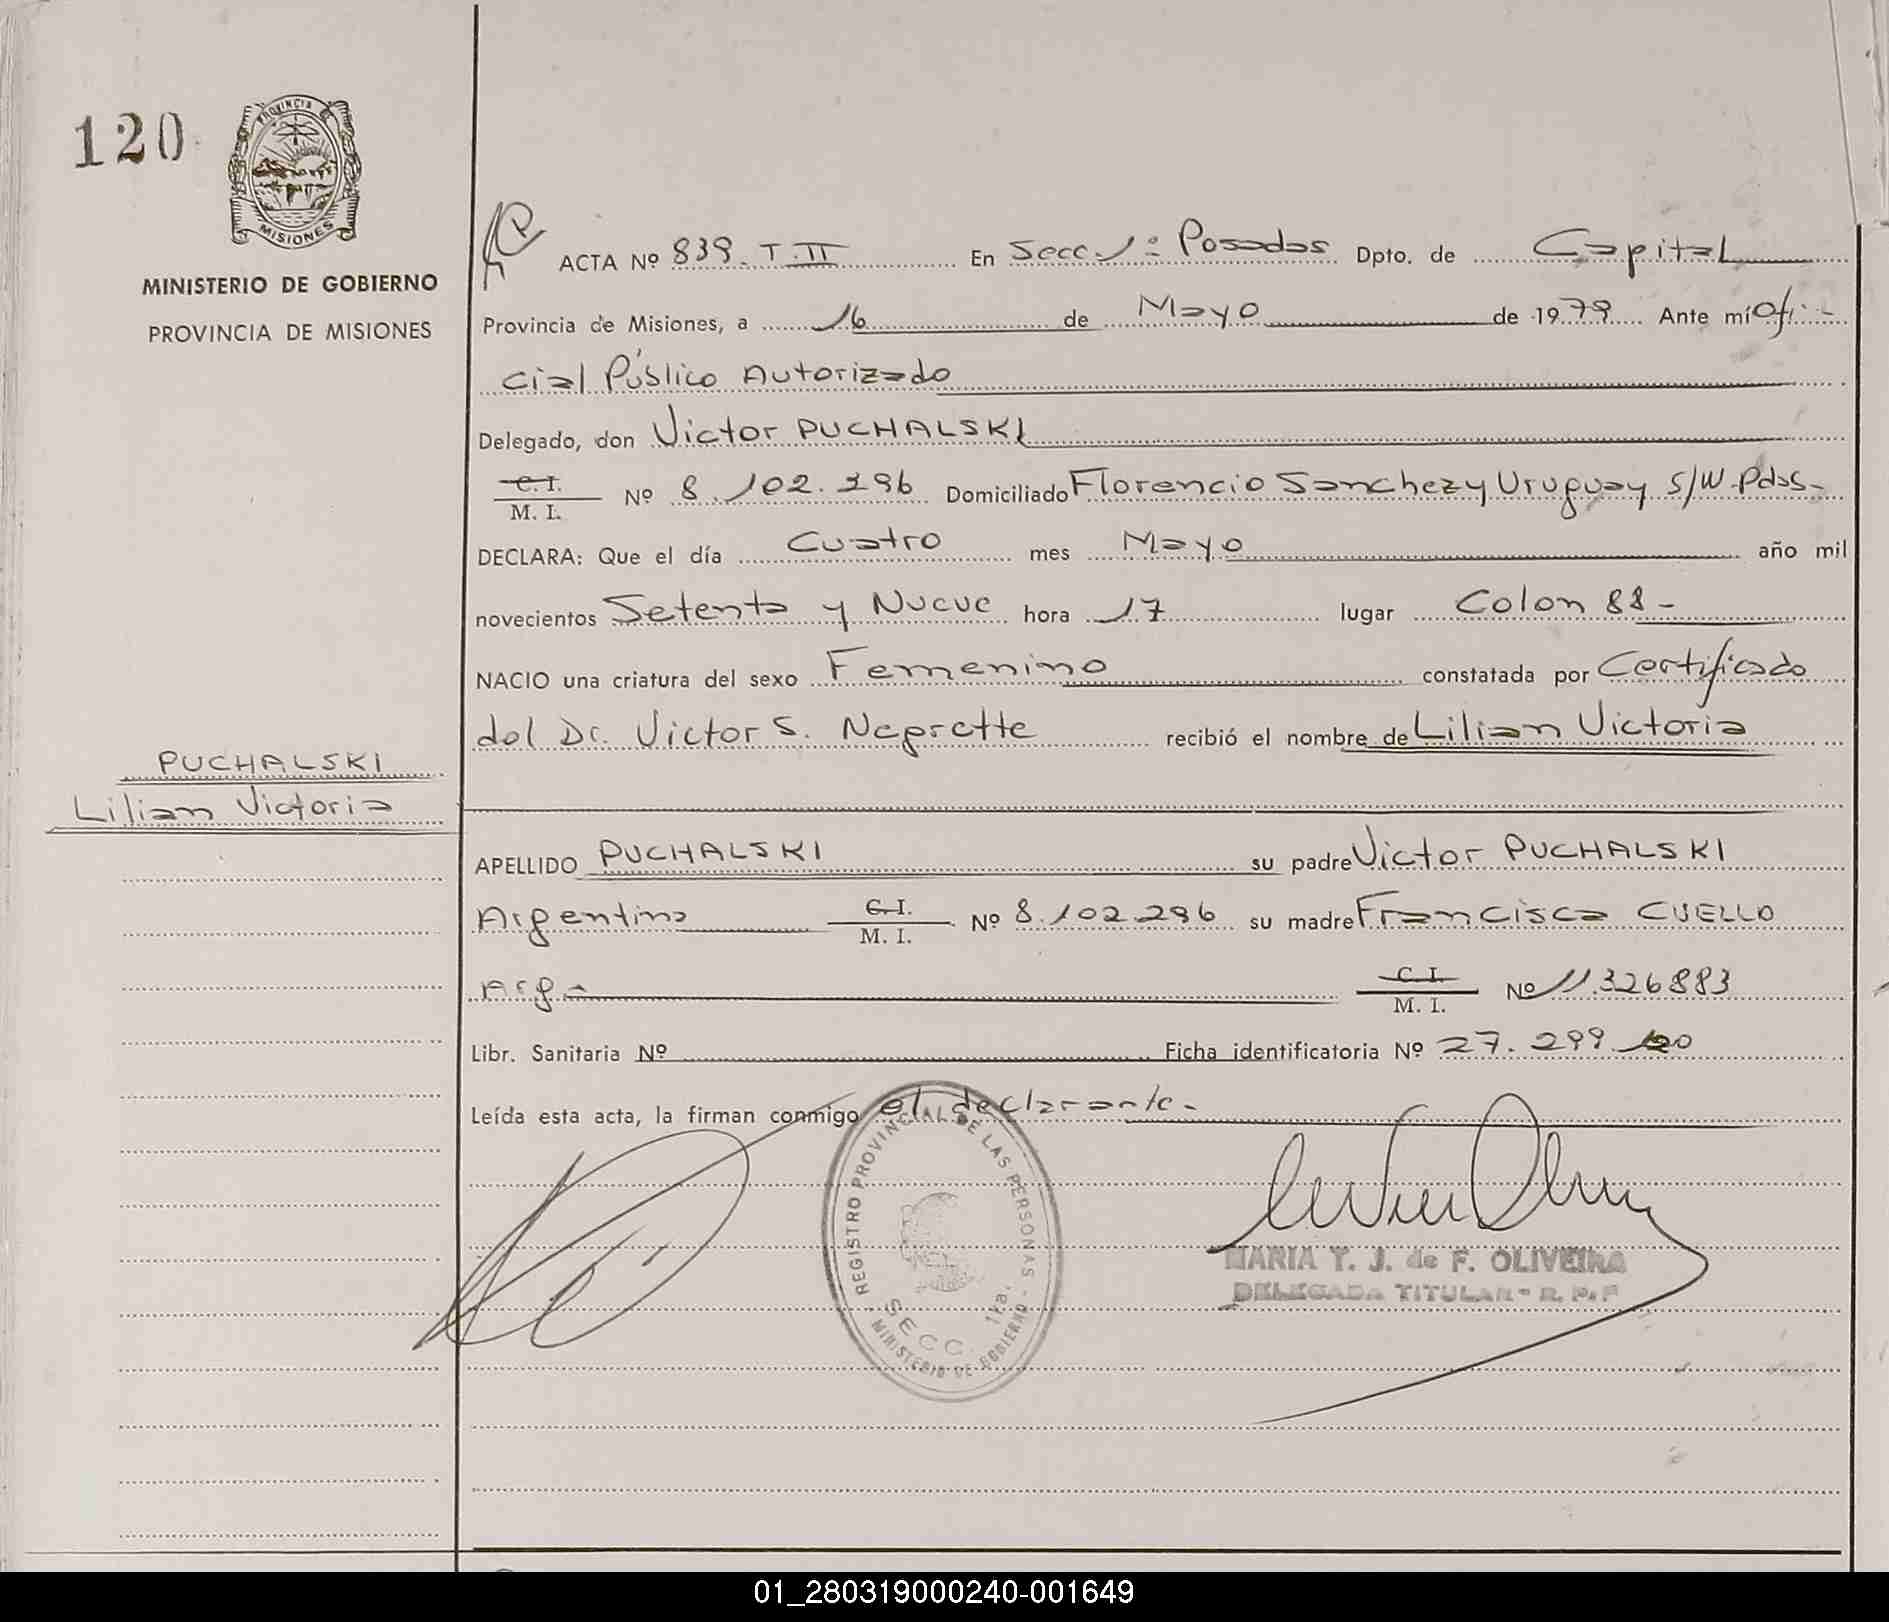 120
PROVINCIA
MISIONES
MINISTERIO DE GOBIERNO
PROVINCIA DE MISIONES
ACTA Nº 839. T.II En Secc 1ª Posadas Dpto. de Capital
Provincia de Misiones, a 16 de Mayo de 1979 Ante mí Ofi-
cial Público Autorizado
Delegado, don Victor PUCHALSKI
C.I.
M. I. Nº 8.102.296 Domiciliado Florencio Sanchez y Uruguay S/W-Pdas-
DECLARA: Que el día Cuatro mes Mayo año mil
novecientos Setenta y Nueve hora 17 lugar Colon 88-
NACIO una criatura del sexo Femenino constatada por Certificado
del Dr. Victor S. Negrette recibió el nombre de Lilian Victoria
PUCHALSKI
Lilian Victoria
APELLIDO PUCHALSKI su padre Victor PUCHALSKI
Argentino C.I. M. I. Nº 8.102.296 su madre Francisca CUELLO
Arg- C.I. M. I. Nº 11.326883
Libr. Sanitaria Nº Ficha identificatoria Nº 27.299.120
Leída esta acta, la firman conmigo el declarante-
REGISTRO PROVINCIAL DE LAS PERSONAS - MINISTERIO DE GOBIERNO -
SECC. 1ra.
MARIA T. J. de F. OLIVEIRA
DELEGADA TITULAR - R. P. P
01_280319000240-001649